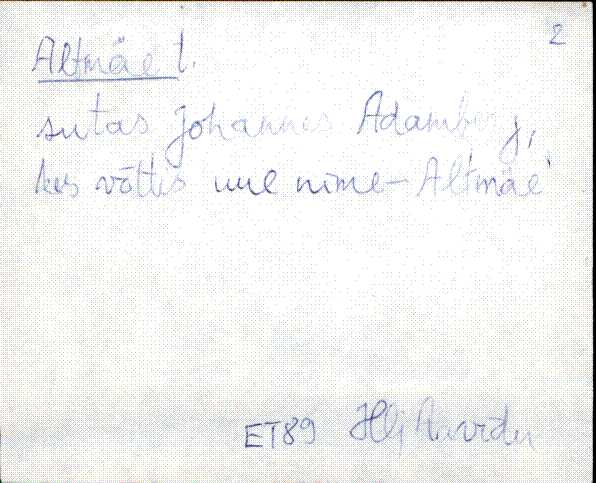 2
Altmäe t.
sutas Johannes Adamberg,
kes võttis uue nime - Altmäe
ET89